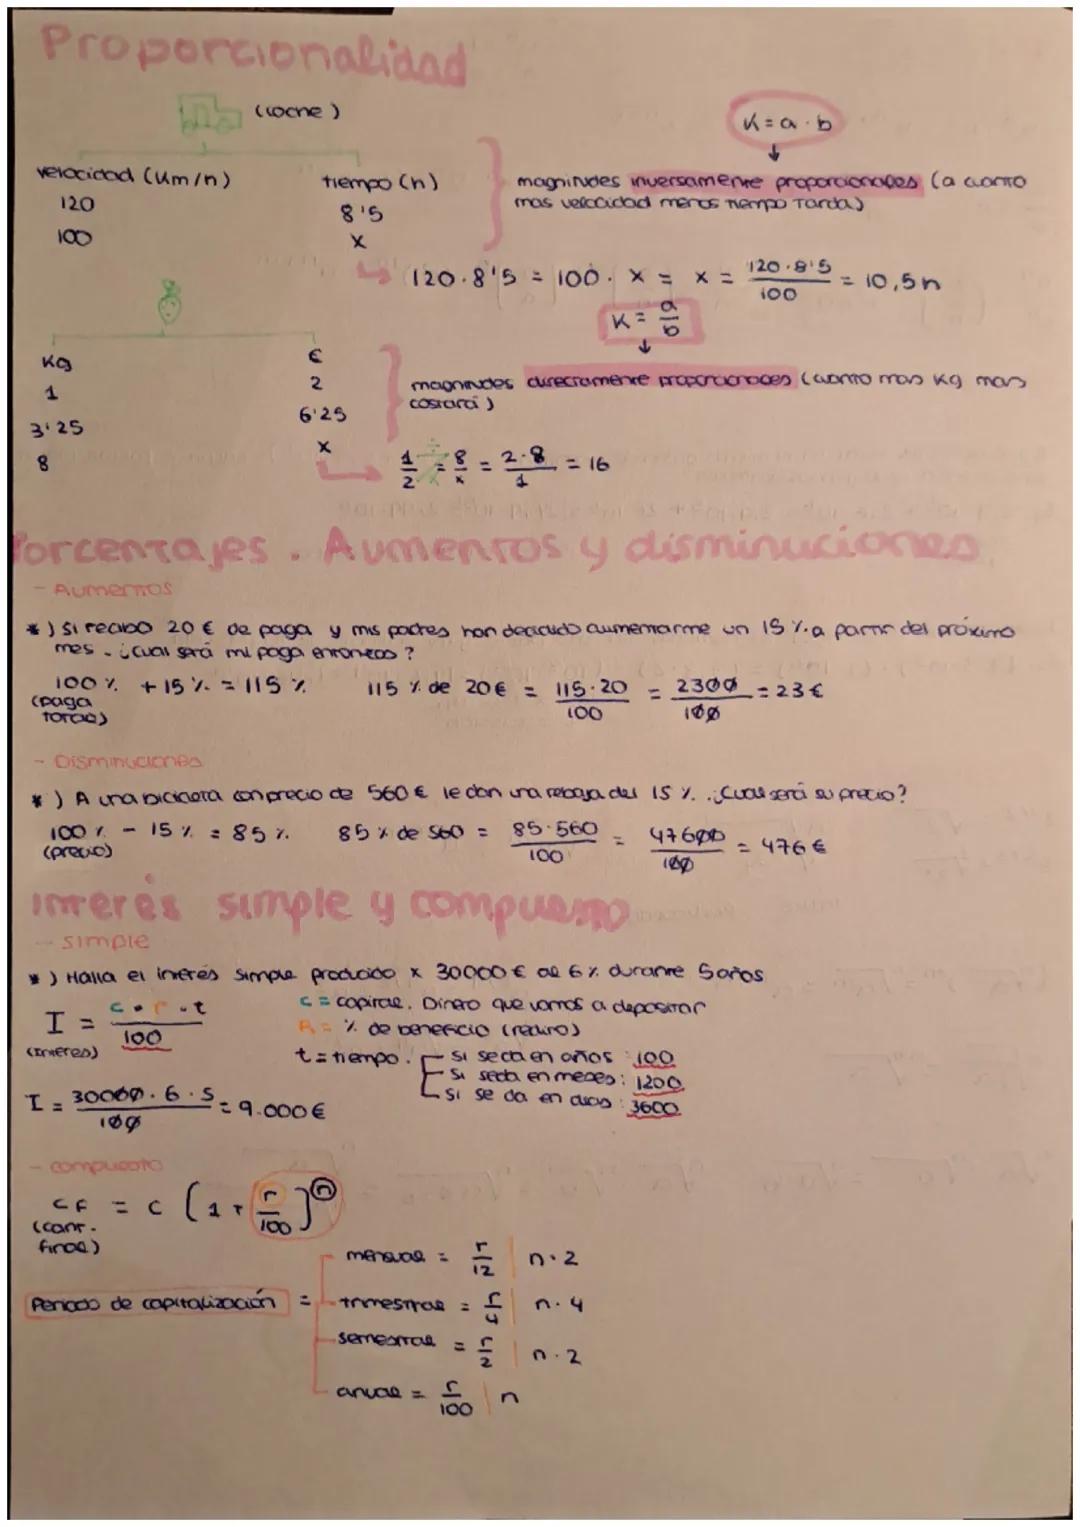 Proporcionalidad
(coche)
K = a · b
velocidad (km/h)
tiempo (h)
magnitudes inversamente proporcionales (a cuanto
mas velocidad menos tiempo tarda)
120
8'5
100
x
120 · 8'5 = 100 · x = x = 120·8'5/100 = 10,5h
K = a/b
kg
€
1
2
magnitudes directamente proporcionales (cuanto mas kg mas
costará)
3'25
6'25
8
x
1/2 = 8/x = 2·8/1 = 16
Porcentajes. Aumentos y disminuciones
- Aumentos
*) Si recibo 20 € de paga y mis padres han decidido aumentarme un 15 % a partir del próximo
mes. ¿cual será mi paga entonces?
100 % + 15 % = 115 %
115 % de 20€ = 115·20/100 = 2300/100 = 23 €
(paga
total)
- Disminuciones
*) A una bicicleta con precio de 560 € le dan una rebaja del 15 %. ¿Cual será su precio?
100 % - 15 % = 85 %
85 % de 560 = 85·560/100 = 47600/100 = 476 €
(precio)
interés simple y compuesto
- simple
*) Halla el interés simple producido x 30000 € al 6 % durante 5 años
I = c · r · t/100
(interes)
c = capital. Dinero que vamos a depositar
R = % de beneficio (redito)
t = tiempo.
si se da en años : 100
si se da en meses : 1200
si se da en dias : 3600
I = 30000 · 6 · 5/100 = 9.000 €
- compuesto
CF = C (1 + r/100)^n
(cant.
final)
Periodo de capitalización =
mensual = r/12 | n · 2
trimestral = r/4 | n · 4
semestral = r/2 | n · 2
anual = r/100 | n